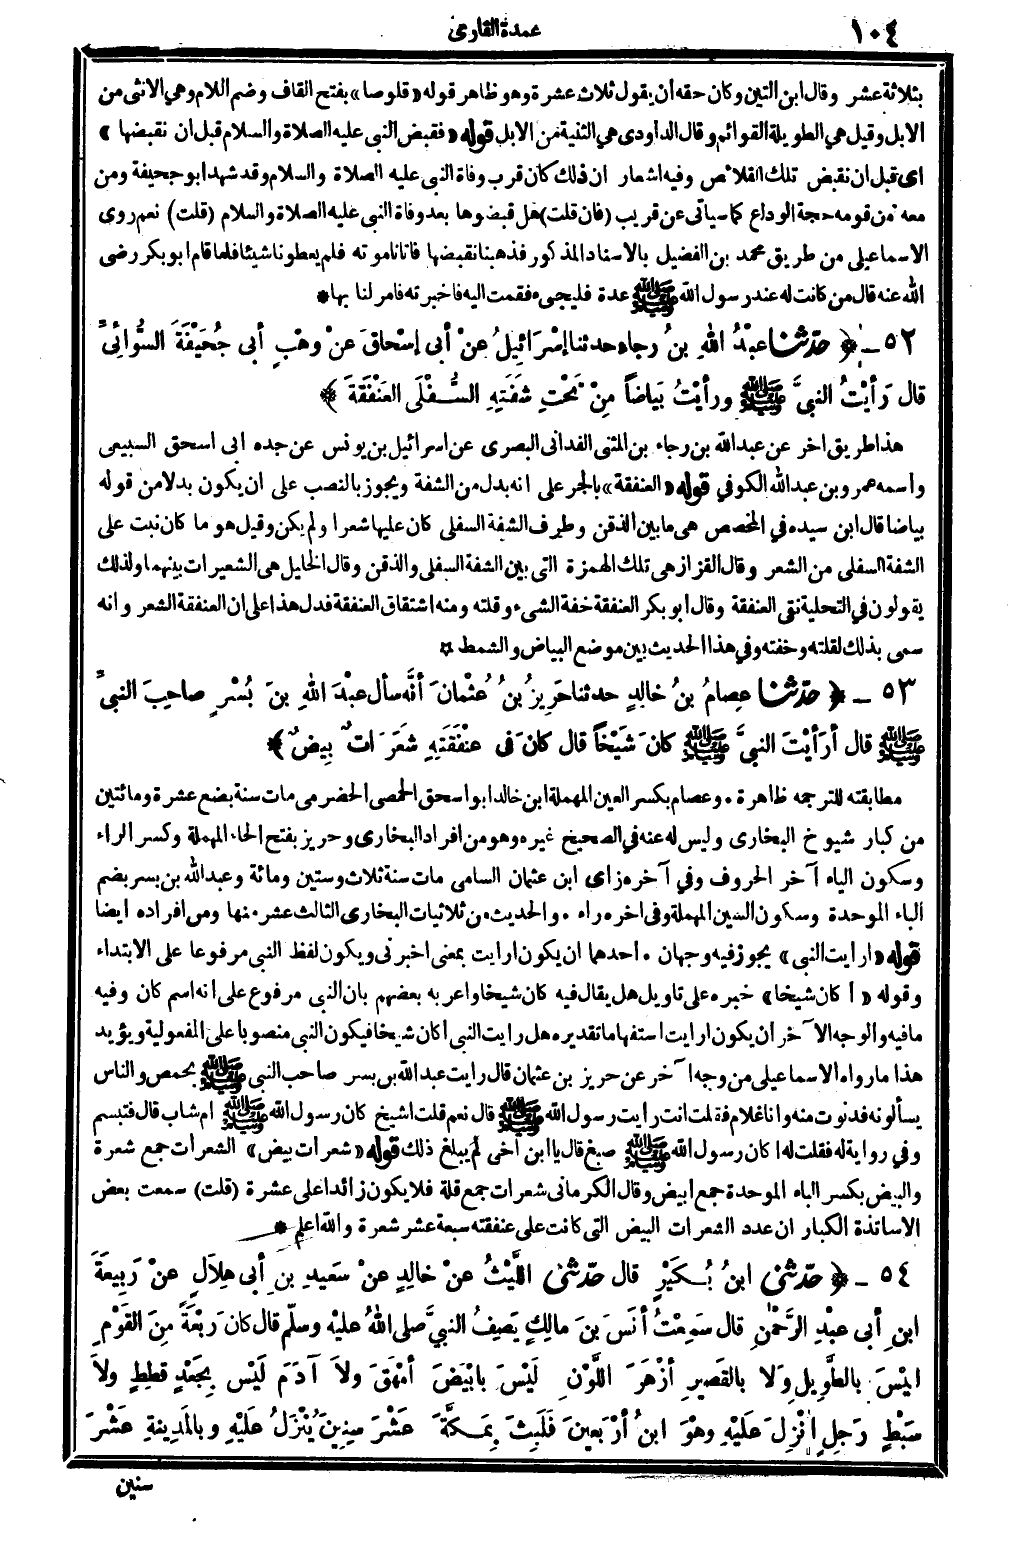 ١٠٤ عمدة القارى
بثلاثة عشر وقال ابن التين وكان حقه أن يقول ثلاث عشرة وهو ظاهر قوله «قلوصا» بفتح القاف وضم اللام وهي الانثى من
الابل وقيل هي الطويلة القوائم وقال الداودى هي الثنية من الابل قوله «فقبض النبى عليه الصلاة والسلام قبل ان نقبضها»
اى قبل ان نقبض تلك القلائص وفيه اشعار ان ذلك كان قرب وفاة النبى عليه الصلاة والسلام وقد شهد ابو جحيفة ومن
معه من قومه حجة الوداع كما سياتى عن قريب (فان قلت) هل قبضوها بعد وفاة النبى عليه الصلاة والسلام (قلت) نعم روى
الاسماعيلى من طريق محمد بن الفضيل بالاسناد المذكور فذهبنا نقبضها فاتانا موته فلم يعطونا شيئا فلما قام ابو بكر رضى
الله عنه قال من كانت له عند رسول الله ﷺ عدة فليجىء فقمت اليه فاخبرته فامر لنا بها*
٥٢ ـ ﴿ حَدَّثنا عبْدُ اللهِ بنُ رجاء حدثنا إسْرَائِيلُ عنْ أبى إسْحاقَ عنْ وهْبٍ أبى جُحَيْفَةَ السُّوَائِىِّ
قال رَأيْتُ النبىَّ ﷺ ورأيْتُ بَياضاً مِنْ تَحْتِ شَفَتِهِ السُّفْلَى العَنْفَقَةَ ﴾
هذا طريق اخر عن عبدالله بن رجاء بن المثنى الغدانى البصرى عن اسرائيل بن يونس عن جده ابى اسحق السبيعى
واسمه عمرو بن عبدالله الكوفي قوله «العنفقة» بالجر على انه بدل من الشفة ويجوز بالنصب على ان يكون بدلا من قوله
بياضا قال ابن سيده في المخصص هى ما بين الذقن وطرف الشفة السفلى كان عليها شعر او لم يكن وقيل هو ما كان نبت على
الشفة السفلى من الشعر وقال القزاز هى تلك الهمزة التى بين الشفة السفلى والذقن وقال الخليل هى الشعيرات بينهما ولذلك
يقولون في التحلية نقى العنفقة وقال ابو بكر العنفقة خفة الشىء وقلته ومنه اشتقاق العنفقة فدل هذا على ان العنفقة الشعر وانه
سمى بذلك لقلته وخفته وفي هذا الحديث بين موضع البياض والشمط *
٥٣ ـ ﴿ حَدَّثنا عِصامُ بنُ خالِدٍ حدثنا حَرِيزُ بنُ عُثْمانَ أنَّه سأل عبْدَ اللهِ بنَ بُسْرٍ صاحِبَ النبىِّ
ﷺ قال أرَأيْتَ النبىَّ ﷺ كانَ شَيْخاً قال كانَ فى عنْفَقَتِهِ شَعَرَاتٌ بِيضٌ ﴾
مطابقته للترجمه ظاهرة. وعصام بكسر العين المهملة ابن خالد ابو اسحق الحمصى الحضرمى مات سنة بضع عشرة ومائتين
من كبار شيوخ البخارى وليس له عنه في الصحيح غيره وهو من افراد البخارى وحريز بفتح الحاء المهملة وكسر الراء
وسكون الياء آخر الحروف وفي آخره زاى ابن عثمان السامى مات سنة ثلاث وستين ومائة وعبدالله بن بسر بضم
الباء الموحدة وسكون السين المهملة وفى اخره راء. والحديث من ثلاثيات البخارى الثالث عشر منها ومن افراده ايضا
قوله «ارايت النبى» يجوز فيه وجهان. احدهما ان يكون ارايت بمعنى اخبرنى ويكون لفظ النبى مرفوعا على الابتداء
وقوله «أ كان شيخا» خبره على تاويل هل يقال فيه كان شيخا واعربه بعضهم بان النبى مرفوع على انه اسم كان وفيه
مافيه والوجه الآخر ان يكون ارايت استفهاما تقديره هل رايت النبى أكان شيخا فيكون النبى منصوبا على المفعولية ويؤيد
هذا ما رواه الاسماعيلى من وجه آخر عن حريز بن عثمان قال رايت عبدالله بن بسر صاحب النبى ﷺ بحمص والناس
يسألونه فدنوت منه وانا غلام فقلت انت رايت رسول الله ﷺ قال نعم قلت اشيخ كان رسول الله ﷺ ام شاب قال فتبسم
وفي رواية له فقلت له اكان رسول الله ﷺ صبغ قال يا ابن أخى لم يبلغ ذلك قوله «شعرات بيض» الشعرات جمع شعرة
والبيض بكسر الباء الموحدة جمع ابيض وقال الكرمانى شعرات جمع قلة فلا يكون زائدا على عشرة (قلت) سمعت بعض
الاساتذة الكبار ان عدد الشعرات البيض التى كانت على عنفقته سبعة عشر شعرة والله اعلم *
٥٤ ـ ﴿ حَدَّثنى ابنُ بُكَيْرٍ قال حَدَّثَنى اللَّيْثُ عنْ خالِدٍ عنْ سَعِيدِ بنِ أبى هِلاَلٍ عنْ رَبِيعةَ
ابنِ أبى عبْدِ الرَّحْمٰنِ قال سَمِعْتُ أنَسَ بنَ مالِكٍ يَصِفُ النبيَّ صلى اللهُ عليْه وسلّم قال كانَ رَبْعَةً مِنَ القَوْمِ
لَيْسَ بالطَّوِيلِ ولا بالقَصيرِ أزْهَرَ اللَّوْنِ لَيْسَ بابْيَضَ أمْهَقَ ولاَ آدَمَ لَيْسَ بِجَعْدٍ قَطِطٍ ولاَ
سَبْطٍ رَجِلٍ أُنْزِلَ عَلَيْهِ وهْوَ ابنُ أرْبَعِينَ فَلَبِثَ بِمَكَّةَ عَشْرَ سِنِينَ يُنْزَلُ عَلَيْهِ وبالمَدِينةِ عَشْرَ
سنين